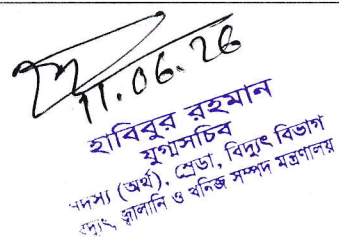 11.06.26
হাবিবুর রহমান
যুগ্মসচিব
সদস্য (অর্থ), স্রেডা, বিদ্যুৎ বিভাগ
বিদ্যুৎ, জ্বালানি ও খনিজ সম্পদ মন্ত্রণালয়